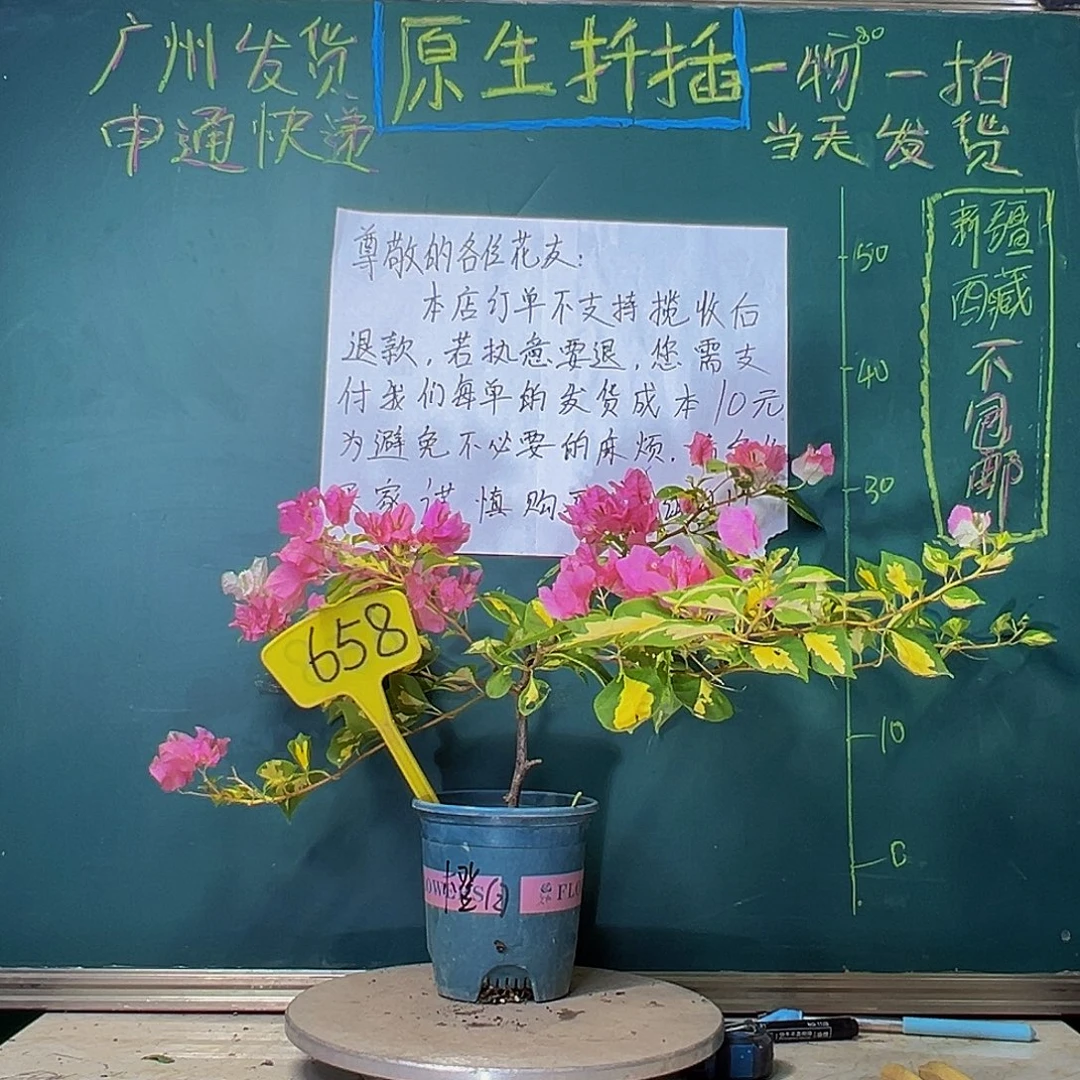 广州发货
原生扦插
一物一拍
申通快递
当天发货
80
新疆
西藏
不包邮
尊敬的各位花友:
本店订单不支持揽收后
退款,若执意要退,您需支
付我们每单的发货成本10元
为避免不必要的麻烦.
家谨慎购买
50
40
30
10
0
658
OWERS
橙
FLO